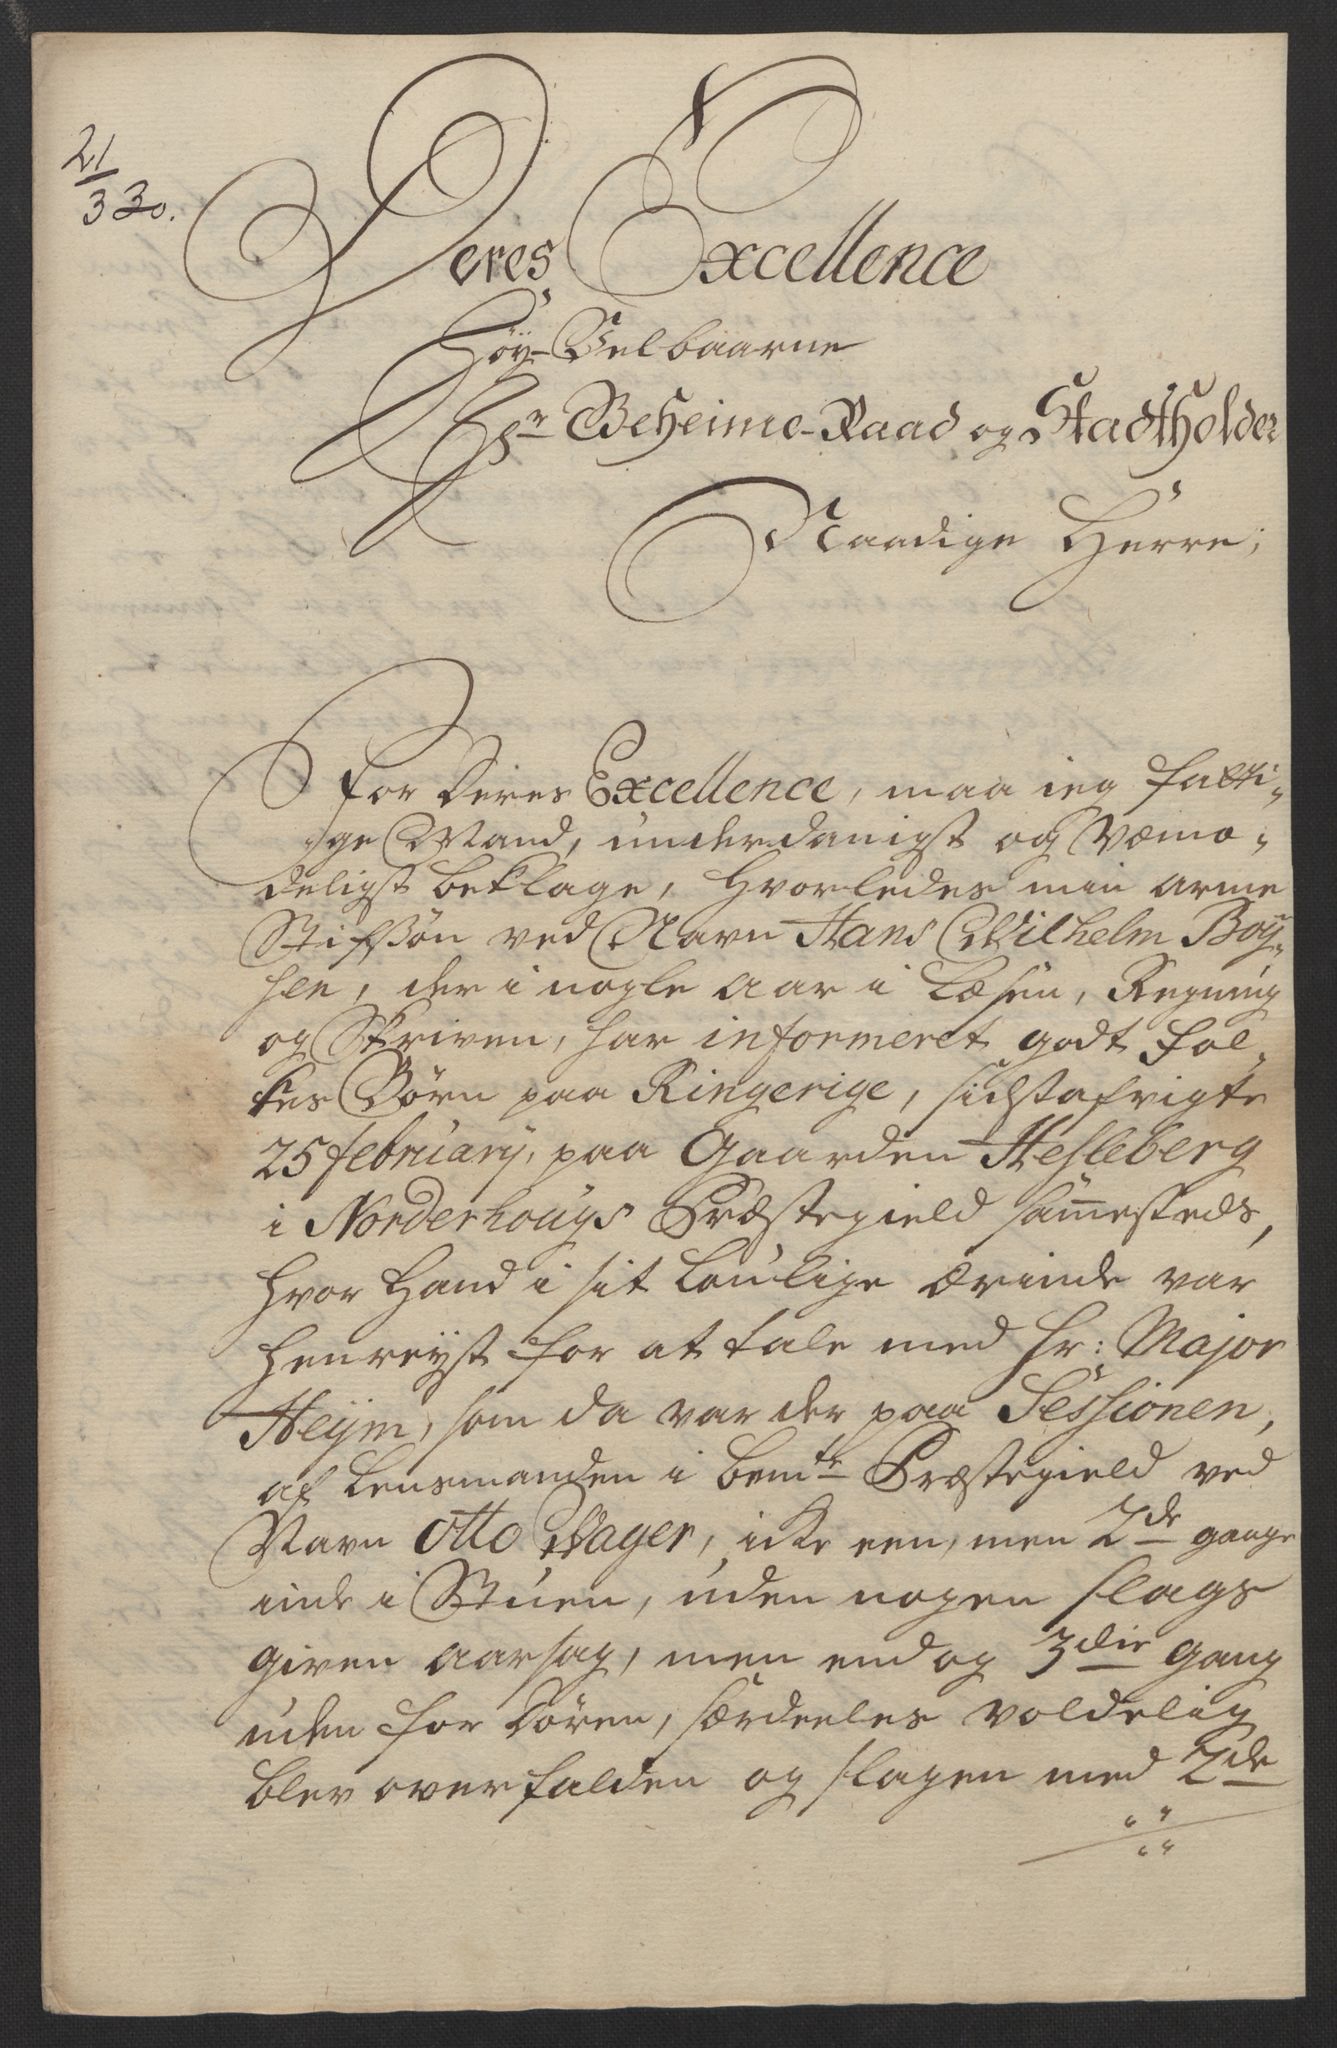 21
3 30.
Deres Excellence
Höy-Velbaarne
Hr Geheime-Raad og Stadtholder
Naadige Herre,
For Deres Excellence, maa ieg fatti-
ge Mand, underdanigst og Væmo-
deligst beklage, hvorledes min arme
Stifsøn ved Navn Hans Wilhelm Boÿ-
sen, der i nogle aar i Læsen, Regning
og Skriven, har informeret godt fol-
kes Børn paa Ringerige, sidstafvigte
25 februarij, paa Gaarden Hesleberg
i Norderhougs Præstegield sam̅esteds,
hvor hand i sit lovlige Ærinde var
henreÿst for at tale med Hr: Major
Heÿm, som da var der paa Sessionen,
af Lensmanden i bemte Præstegield ved
Navn Otto Wager, icke een, men 2de gange
inde i Stuen, uden nogen slags
given aarsag, men endog 3die gang
uden for Døren, særdeeles voldelig
blev overfalden og slagen med 2de